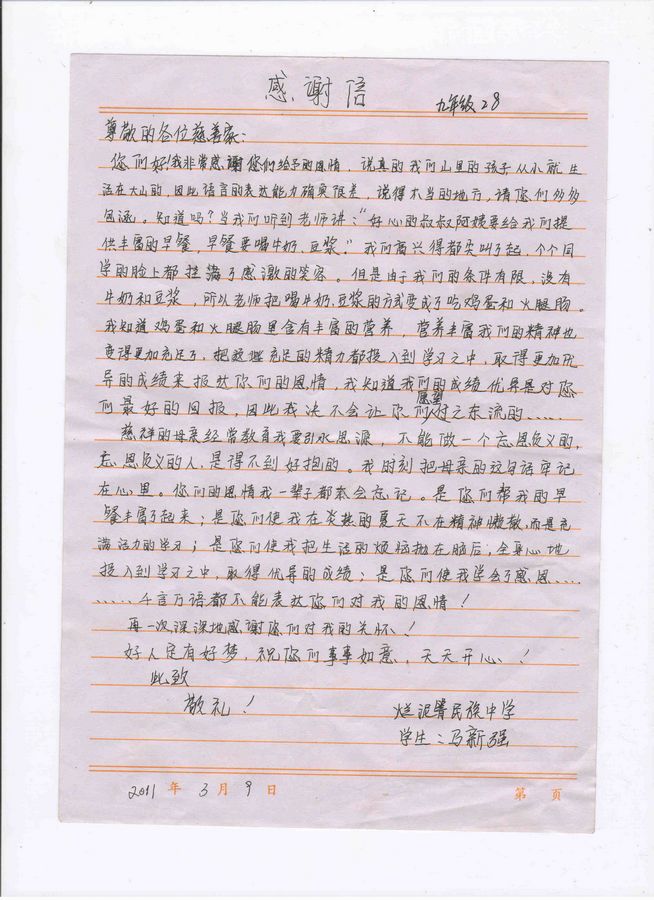 感谢信
九年级28
尊敬的各位慈善家:
您们好!我非常感谢您们给予的恩情,说真的我们山里的孩子从小就生
活在大山的,因此语言的表达能力确实很差,说得不当的地方,请您们多多
包涵。知道吗?当我们听到老师讲:“好心的叔叔阿姨要给我们提
供丰富的早餐,早餐要喝牛奶、豆浆。”我们高兴得都尖叫了起,个个同
学的脸上都挂满了感激的笑容。但是由于我们的条件有限,没有
牛奶和豆浆,所以老师把喝牛奶、豆浆的方式变成了吃鸡蛋和火腿肠。
我知道鸡蛋和火腿肠里含有丰富的营养,营养丰富我们的精神也
变得更加充足了,把这些充足的精力都投入到学习之中,取得更加优
异的成绩来报达你们的恩情,我知道我们的成绩优异是对您
们最好的回报,因此我决不会让你们愿望付之东流的……
慈祥的母亲经常教育我要引水思源,不能做一个忘恩负义的,
忘恩负义的人,是得不到好抱的。我时刻把母亲的这句话牢记
在心里。您们的恩情我一辈子都不会忘记。是您们帮我的早
餐丰富了起来;是您们使我在炎热的夏天不在精神懒散,而是充
满活力的学习;是您们使我把生活的烦恼抛在脑后,全身心地
投入到学习之中,取得优异的成绩;是您们使我学会了感恩……
……千言万语都不能表达您们对我的恩情!
再一次深深地感谢您们对我的关怀!
好人定有好梦,祝您们事事如意,天天开心!
此致
敬礼!
烂泥箐民族中学
学生:马新强
2011年3月9日
第 页